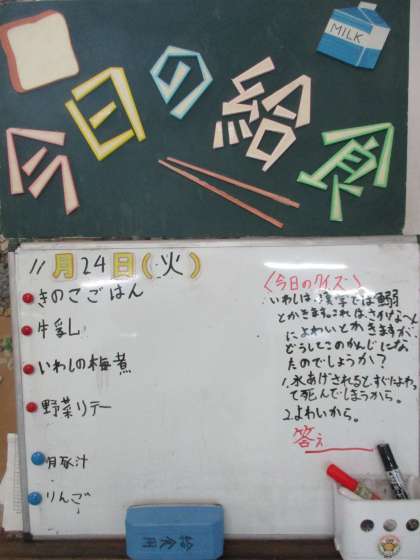 今日の給食
MILK
11月24日(火)
きのこごはん
牛乳
いわしの梅煮
野菜ソテー
豚汁
りんご
〈今日のクイズ〉
いわしは、漢字では鰯
とかきます。これは、さかなへん
によわいとかきますが、
どうしてこのかんじにな
たのでしょうか?
1.水あげされるとすぐによわっ
て死んでしまうから。
2.よわいから。
答え
給食用